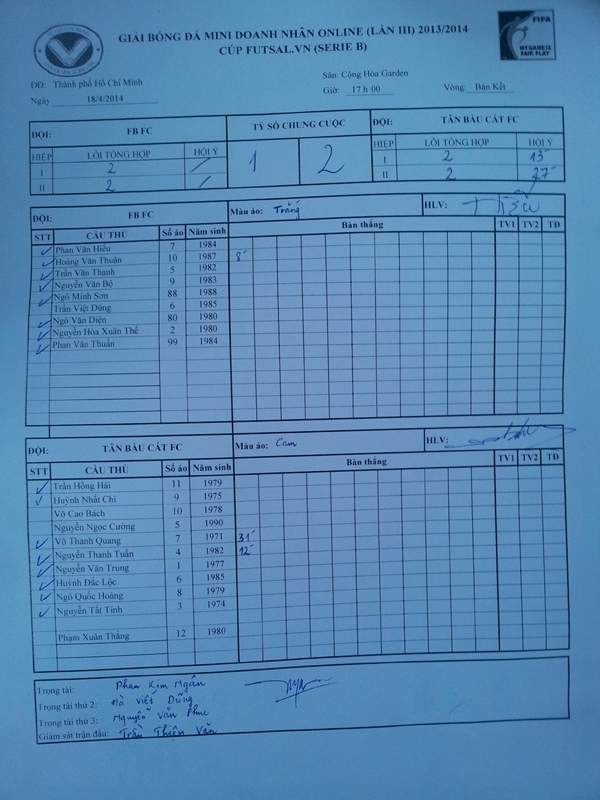 GIẢI BÓNG ĐÁ MINI DOANH NHÂN ONLINE (LẦN III) 2013/2014
CÚP FUTSAL.VN (SERIE B)
FIFA
MY GAME IS FAIR PLAY
ĐD: Thành phố Hồ Chí Minh Sân: Cộng Hòa Garden
Ngày 18/4/2014 Giờ: 17 h 00 Vòng: Bán Kết
ĐỘI: FB FC TỶ SỐ CHUNG CUỘC ĐỘI: TÂN BÀU CÁT FC
HIỆP LỖI TỔNG HỢP HỘI Ý 1 2 HIỆP LỖI TỔNG HỢP HỘI Ý
I 2 / I 2 13'
II 2 / II 2 27'
ĐỘI: FB FC Màu áo: Trắng HLV:
STT CẦU THỦ Số áo Năm sinh Bàn thắng TV1 TV2 TĐ
Phan Văn Hiếu 7 1984
Hoàng Văn Thuận 10 1987 8'
Trần Văn Thạnh 5 1982
Nguyễn Văn Bộ 9 1983
Ngô Minh Sơn 88 1988
Trần Việt Dũng 6 1985
Ngô Văn Diện 80 1980
Nguyễn Hòa Xuân Thế 2 1980
Phan Văn Thuấn 99 1984
ĐỘI: TÂN BÀU CÁT FC Màu áo: Cam HLV:
STT CẦU THỦ Số áo Năm sinh Bàn thắng TV1 TV2 TĐ
Trần Hồng Hải 11 1979
Huỳnh Nhất Chi 9 1975
Võ Cao Bách 10 1978
Nguyễn Ngọc Cường 5 1990
Võ Thanh Quang 7 1971 31'
Nguyễn Thanh Tuấn 4 1982 12'
Nguyễn Văn Trung 1 1977
Huỳnh Đắc Lộc 6 1985
Ngô Quốc Hoàng 8 1979
Nguyễn Tất Tính 3 1974
Phạm Xuân Thăng 12 1980
Trọng tài: Phan Kim Ngân
Trọng tài thứ 2: Hà Viết Dũng
Trọng tài thứ 3: Nguyễn Văn Phúc
Giám sát trận đấu: Trần Thiện Văn